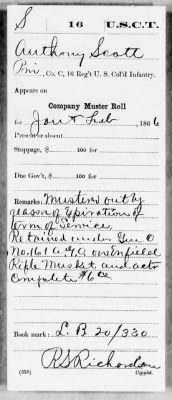 S | 16 | U.S.C.T.
Anthony Scott
Pvt, Co. C, 16 Reg't U. S. Col'd Infantry.
Appears on
Company Muster Roll
for Jan & Feb, 1866
Present or absent
Stoppage, $ 100 for
Due Gov't, $ 100 for
Remarks: Musterd out by
reason of Expirations of
term of Service
Retained under Gen O
No. 101 One Enfield
Rifle Musket and acts
Complete $6 00
Book mark: L. B. 20/330
R S Richardson
(358) Copyist.